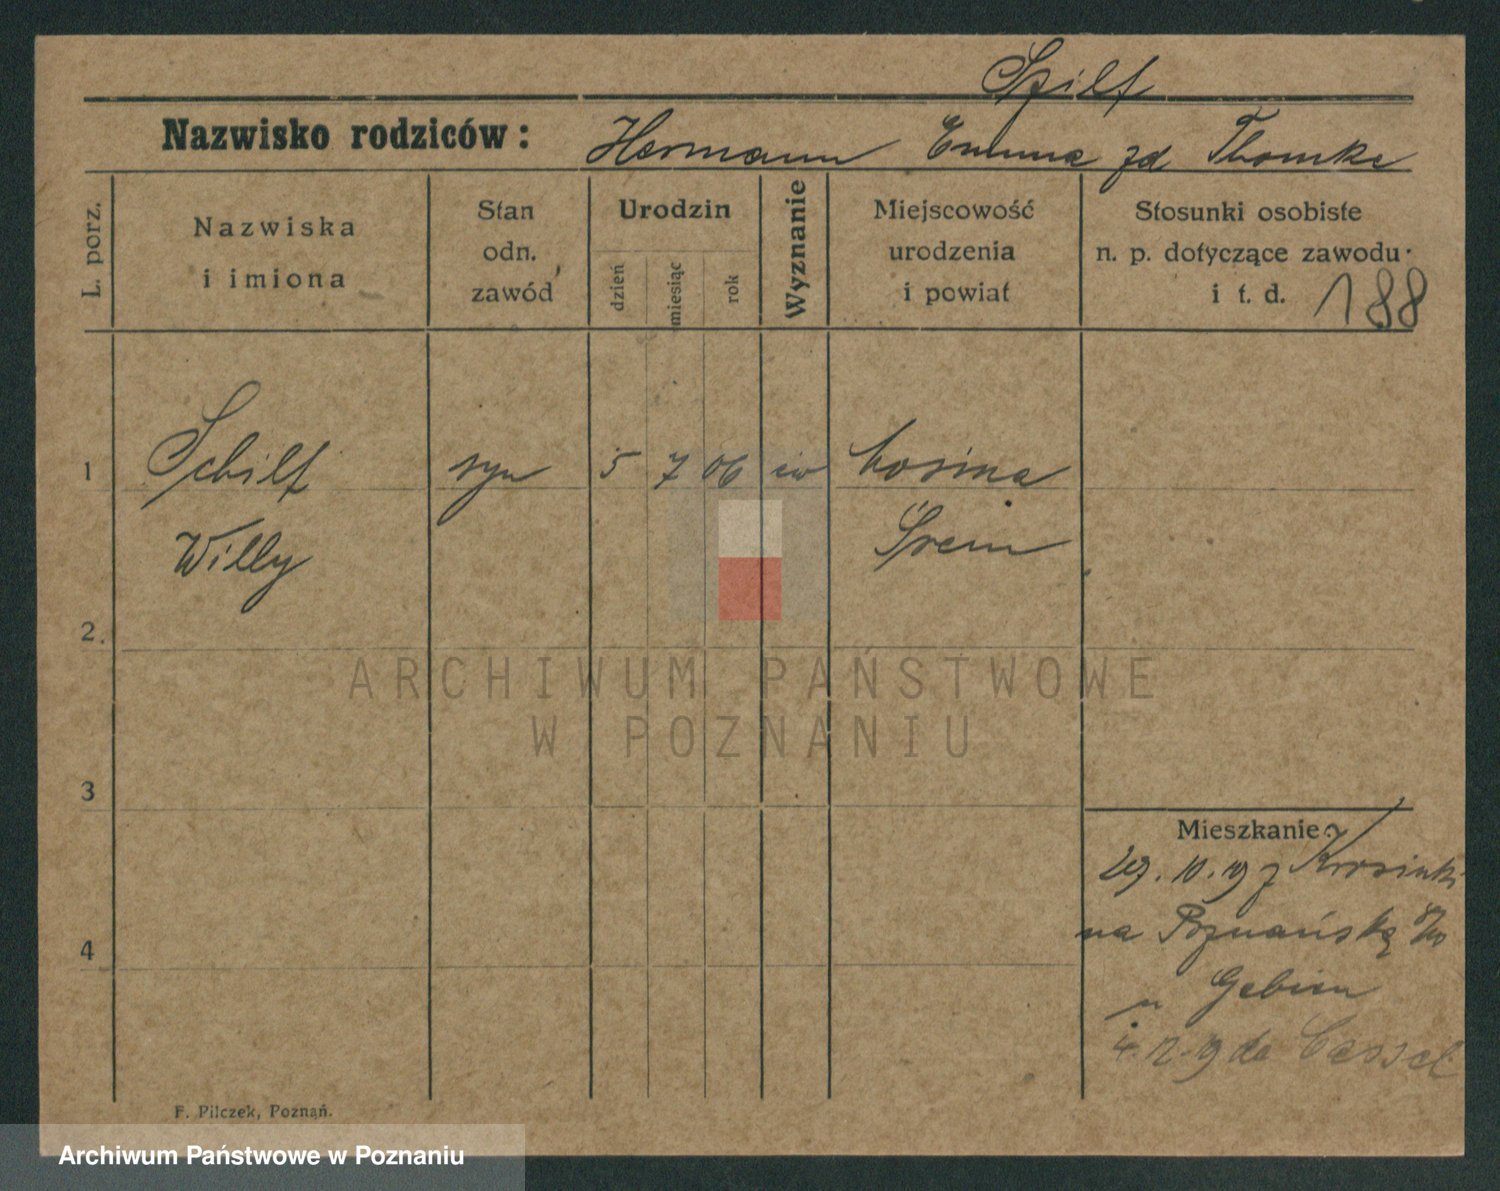 Szilf
Nazwisko rodziców: Hermann Emma zd Thomke
L. porz.
Nazwiska
i imiona
Stan
odn.
zawód
Urodzin
dzień
miesiąc
rok
Wyznanie
Miejscowość
urodzenia
i powiat
Stosunki osobiste
n. p. dotyczące zawodu
i t. d. 188
1 Schilf syn 5 7 06 ew Łosina
Willy Śrem
2.
3
4
Mieszkanie
29. 10. 19 z Krosinki
na Poznańską
u Gebien
4. 12. 19 do Cassel
F. Pilczek, Poznań.
ARCHIWUM PAŃSTWOWE
W POZNANIU
Archiwum Państwowe w Poznaniu